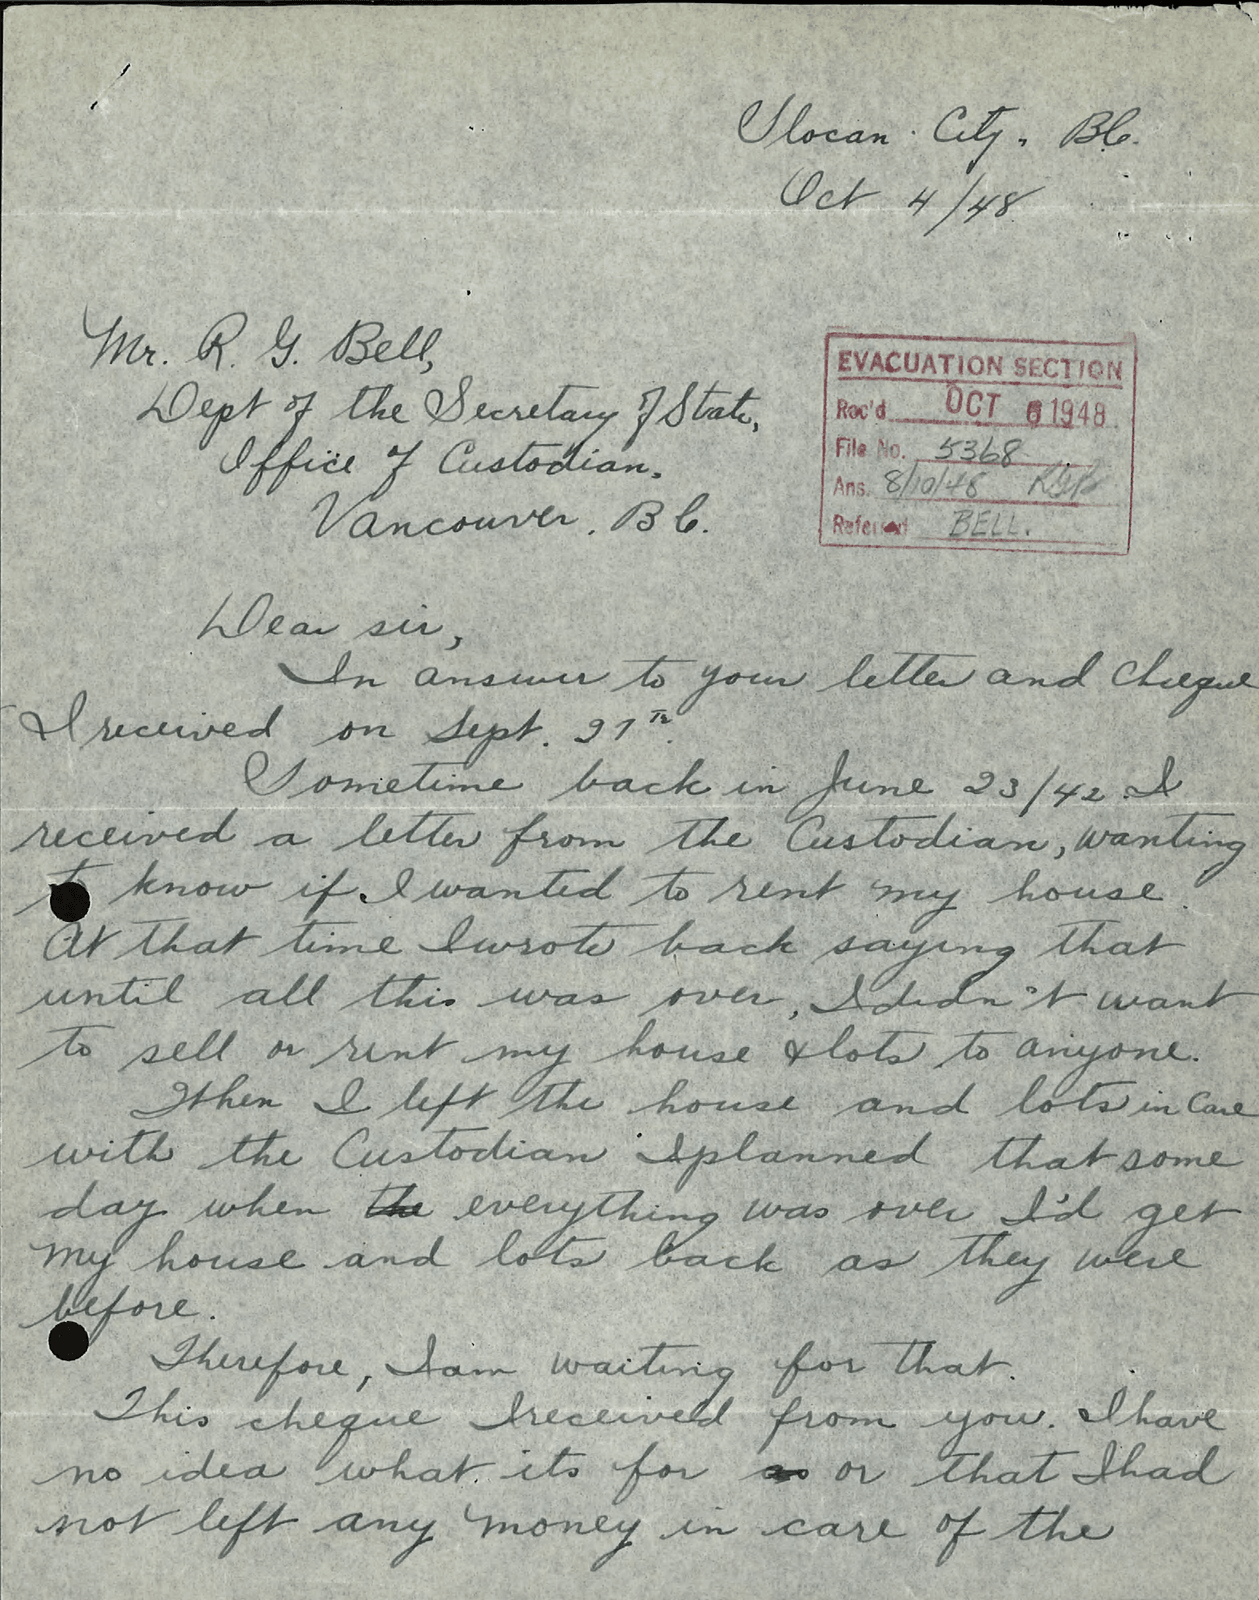 Slocan City, B.C.
Oct 4/48
Mr. R. G. Bell,
Dept of the Secretary of State,
Office of Custodian.
Vancouver, B.C.
EVACUATION SECTION
Rec'd OCT 6 1948
File No. 5368
Ans. 8/10/48
Referred BELL.
Dear sir,
In answer to your letter and cheque
I received on Sept. 27th.
Sometime back in June 23/42 I
received a letter from the Custodian, wanting
to know if I wanted to rent my house.
At that time I wrote back saying that
until all this was over, I didn't want
to sell or rent my house & lots to anyone.
When I left the house and lots in care
with the Custodian I planned that some
day when the everything was over I'd get
my house and lots back as they were
before.
Therefore, I am waiting for that.
This cheque I received from you. I have
no idea what its for as or that I had
not left any money in care of the